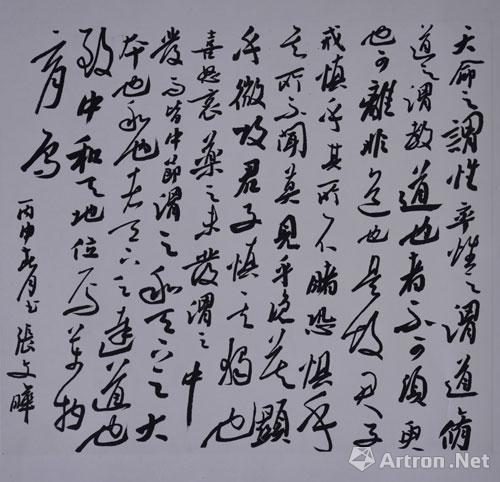 天命之謂性率性之謂道脩
道之謂教道也者不可須臾
也可離非道也是故君子
戒慎乎其所不睹恐懼乎
其所不聞莫見乎隱莫顯
乎微故君子慎其獨也
喜怒哀樂之未發謂之中
發而皆中節謂之和天下之大
本也和也者天下之達道也
致中和天地位焉萬物
育焉
丙申春月 張文
Artron.Net